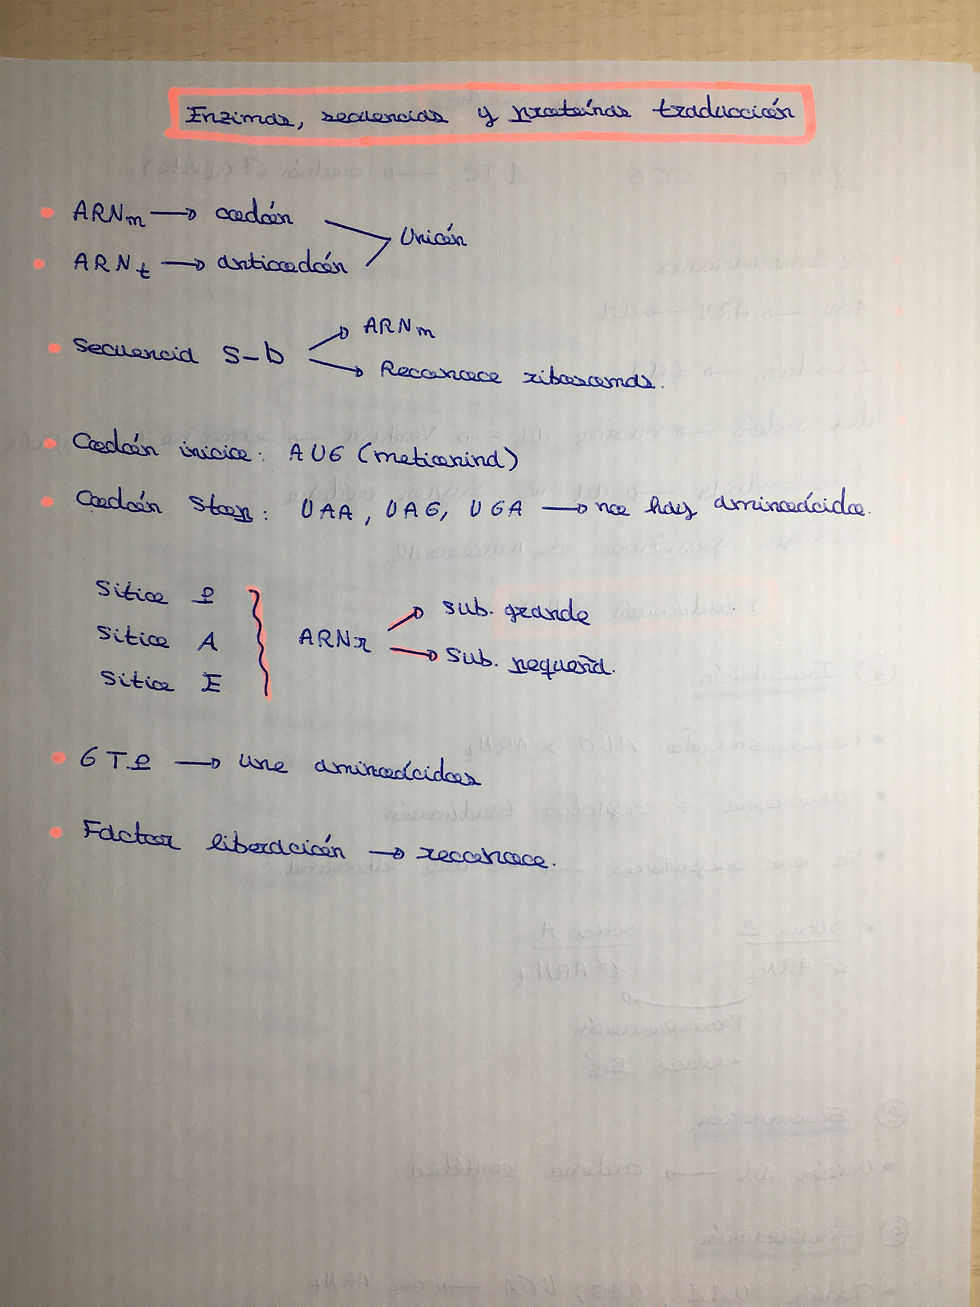 Enzimas, secuencias y proteínas traducción
ARNm → codón
Unión
ARNt → anticodón
Secuencia S-D
ARNm
Reconoce ribosomas.
Codón inicio: AUG (metionina)
Codón Stop: UAA, UAG, UGA → no hay aminoácido.
Sitio P
Sitio A
Sitio E
ARNr
sub. grande
sub. pequeña.
GTP → une aminoácidos
Factor liberación → reconoce.